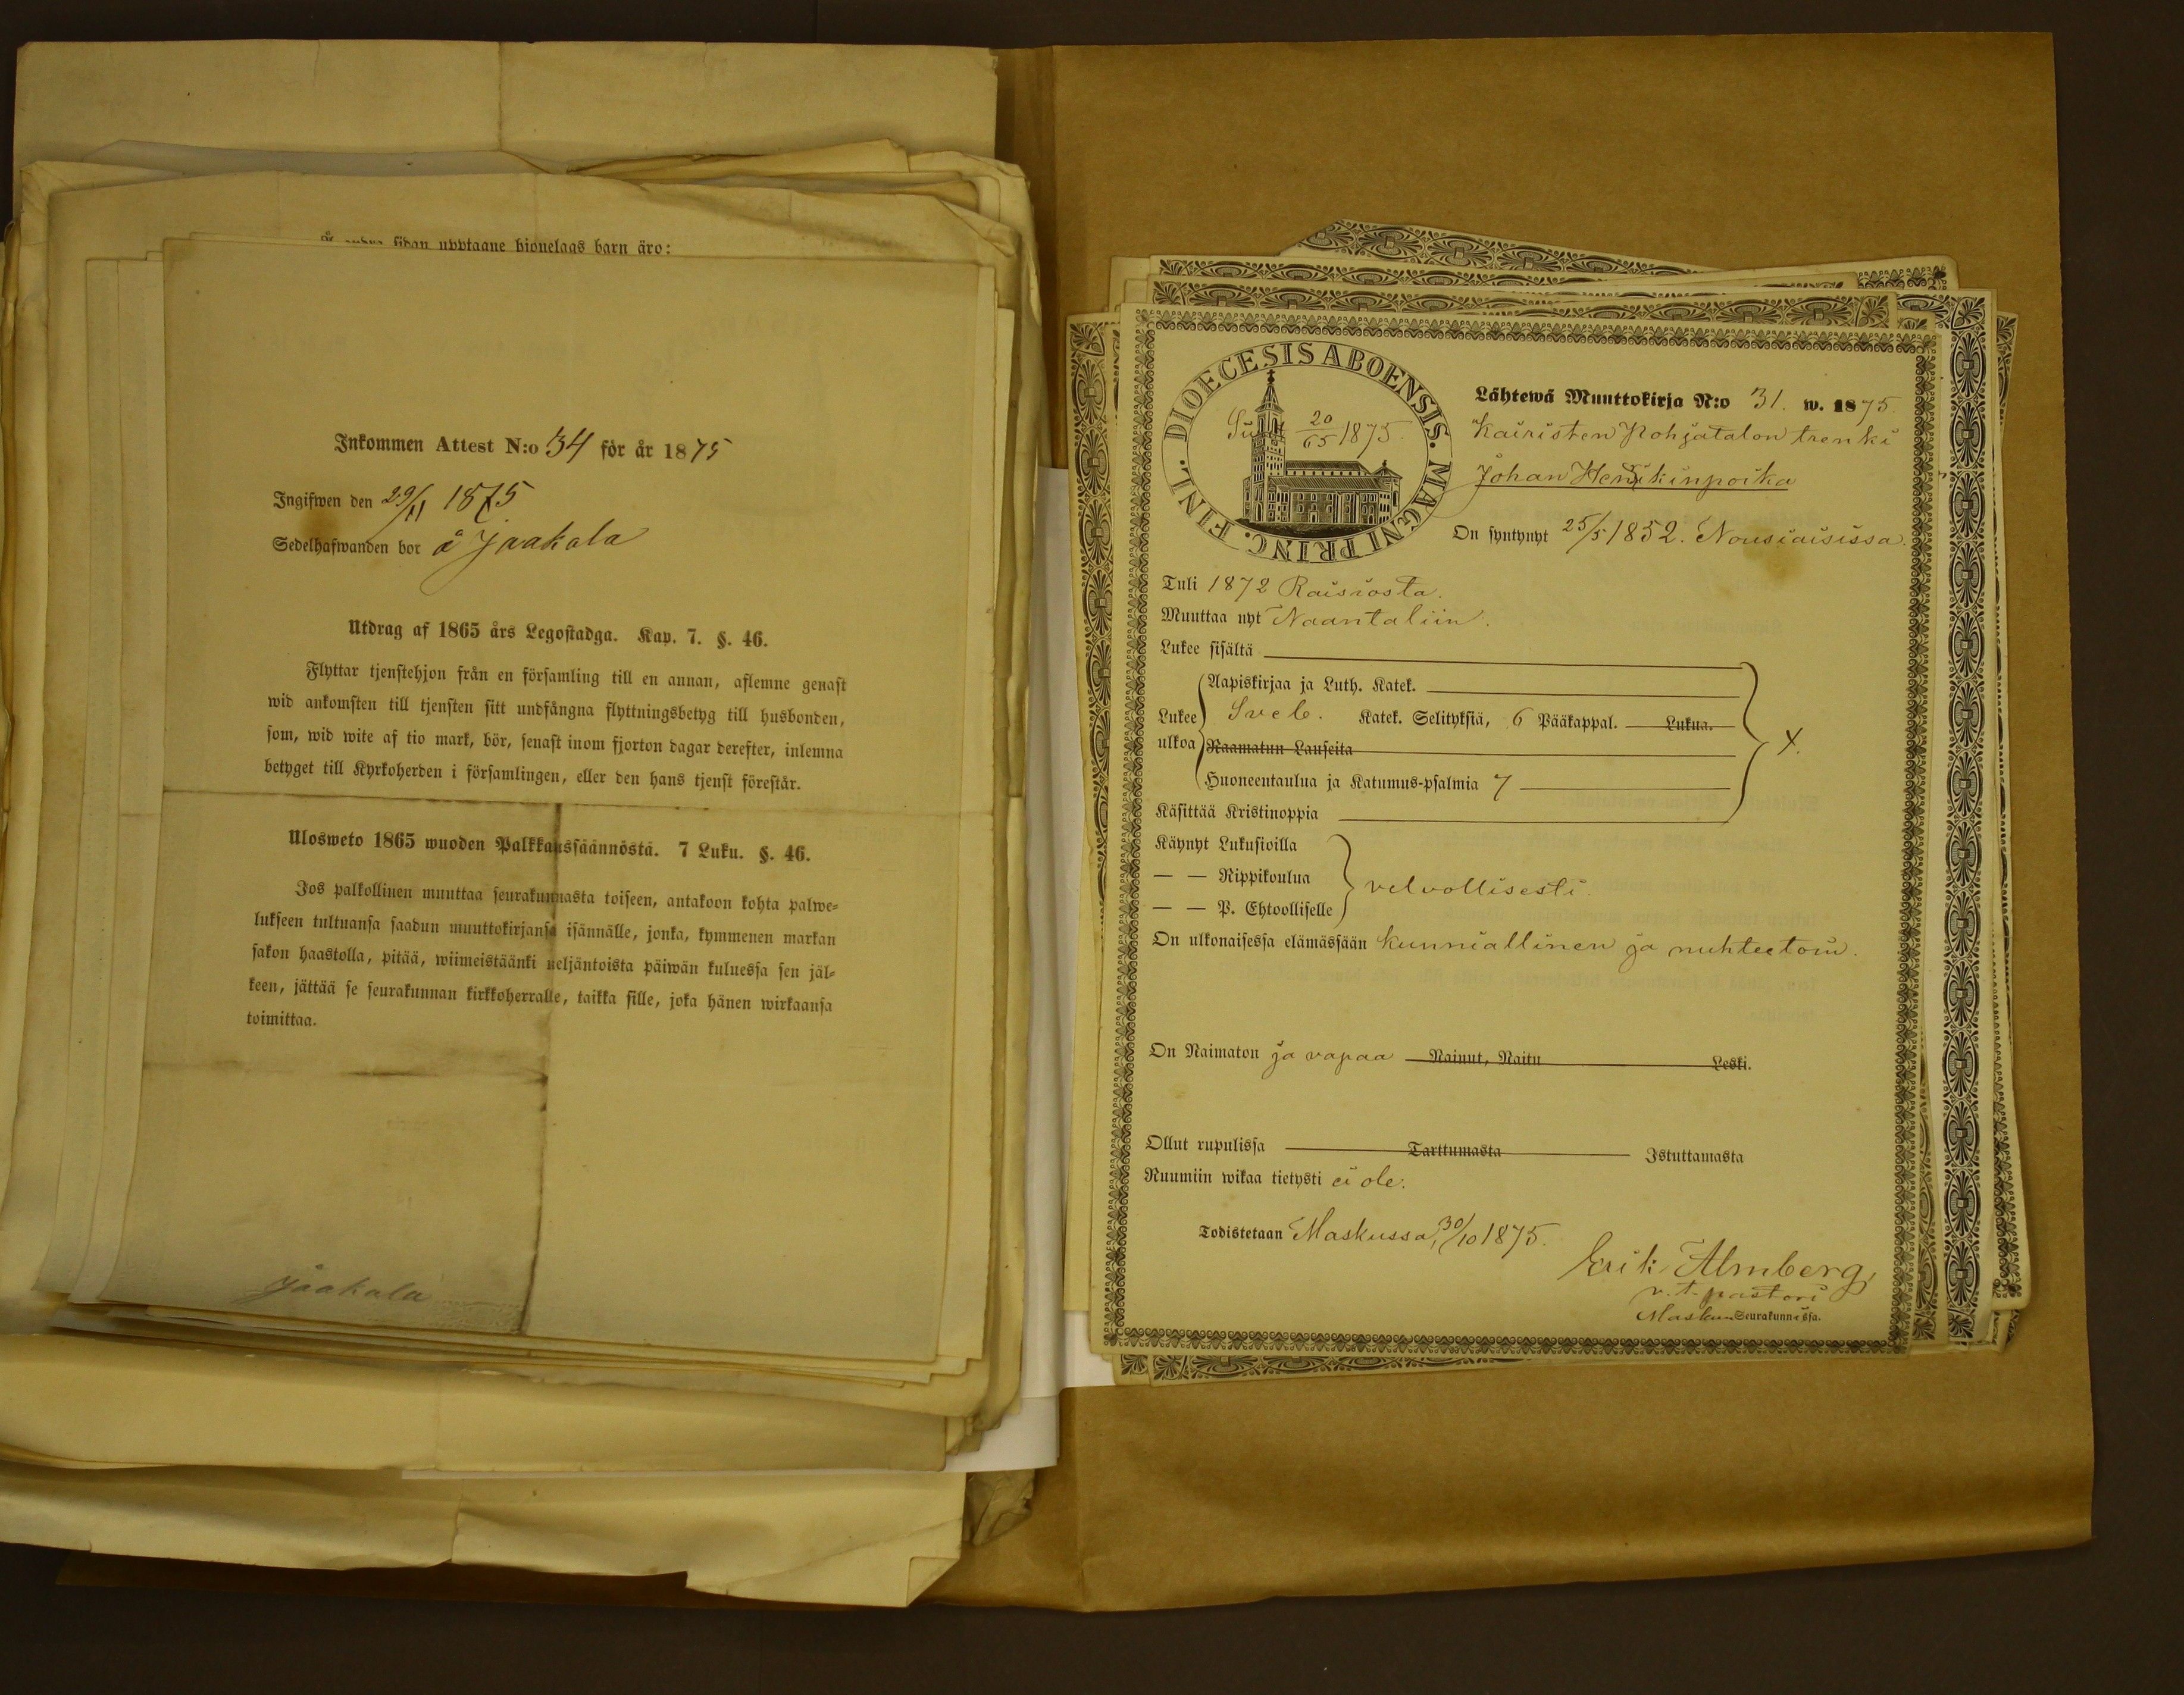 sidan upptagne hionelags barn äro:
Inkommen Attest N:o 34 för år 1875
Ingifwen den 29/11 1875
Sedelhafwanden bor å Jaakola
Utdrag af 1865 års Legostadga. Kap. 7. §. 46.
Flyttar tjenstehjon från en församling till en annan, aflemne genast
wid ankomsten till tjensten sitt undfångna flyttningsbetyg till husbonden,
som, wid wite af tio mark, bör, senast inom fjorton dagar derefter, inlemna
betyget till Kyrkoherden i församlingen, eller den hans tjenst förestår.
Ulosweto 1865 wuoden Palkkaussäännöstä. 7 Luku. §. 46.
Jos palkollinen muuttaa seurakunnasta toiseen, antakoon kohta palwe-
lukseen tultuansa saadun muuttokirjansa isännälle, jonka, kymmenen markan
sakon haastolla, pitää, wiimeistäänki neljäntoista päiwän kuluessa sen jäl-
keen, jättää se seurakunnan kirkkoherralle, taikka sille, joka hänen wirkaansa
toimittaa.
Jaakola
DIOECESIS ABOENSIS. MAGNI PRINC. FINL.
1875.
Lähtewä Muuttokirja N:o 31. w. 1875.
Kairisten Pohjatalon trenki
Johan Henrikinpoika
On syntynyt 25/5 1852. Nousiaisissa.
Tuli 1872 Raisiosta.
Muuttaa nyt Naantaliin.
Lukee sisältä
Aapiskirjaa ja Luth. Katek.
Lukee ulkoa Sveb. Katek. Selityksiä, 6 Pääkappal. Lukua. X.
Raamatun Lauseita
Huoneentaulua ja Katumus-psalmia 7
Käsittää Kristinoppia
Käynyt Lukusioilla
— — Rippikoulua velvollisesti.
— — P. Ehtoolliselle
On ulkonaisessa elämässään kunniallinen ja nuhteetoin.
On Naimaton ja vapaa Nainut, Naitu Leski.
Ollut rupulissa Tarttumasta Istuttamasta
Ruumiin wikaa tietysti ei ole.
Todistetaan Maskussa, 30/10 1875.
Erik Almberg,
v. t. pastori
Maskun Seurakunnassa.